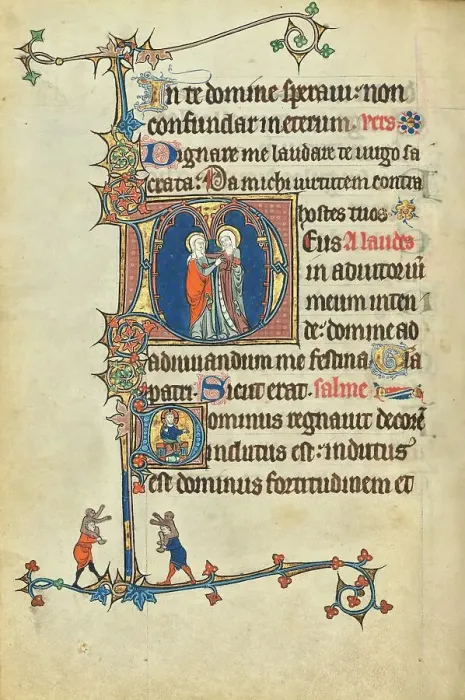 In te domine speraui: non
confundar in eternum. vers
Dignare me laudare te uirgo sa
crata: Da michi uirtutem contra
hostes tuos
DEus A laudes
in adiutoriū
meum inten
de: domine ad
adiuuandum me festina Gla
patri. Sicut erat. salme
Dominus regnauit decorē
indutus est: indutus
est dominus fortitudinem et